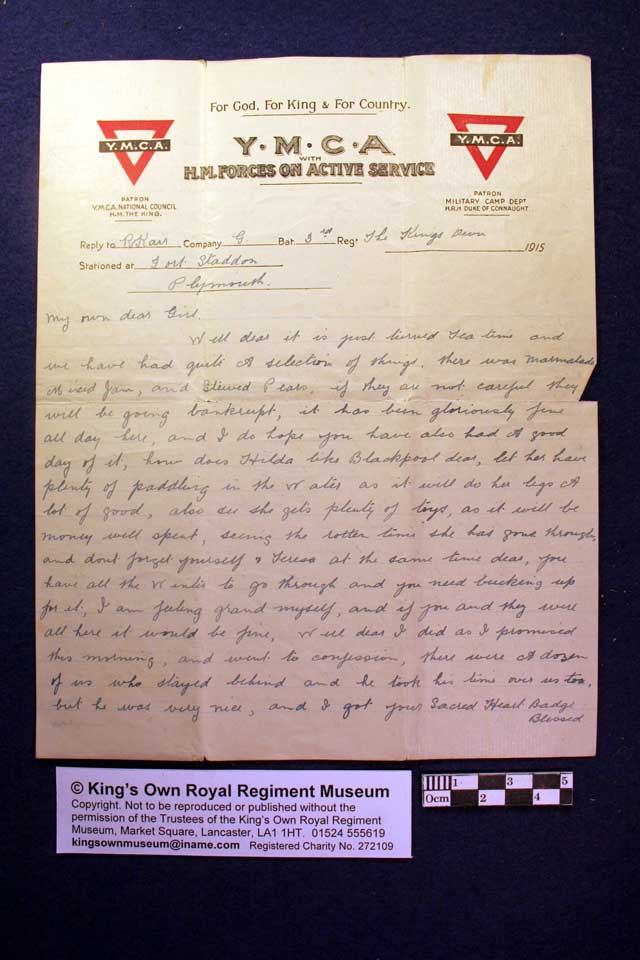 For God, For King & For Country.
Y.M.C.A.
Y·M·C·A
WITH
H.M. FORCES ON ACTIVE SERVICE
Y.M.C.A.
PATRON
Y.M.C.A. NATIONAL COUNCIL
H.M. THE KING.
PATRON
MILITARY CAMP DEPT
H.R.H DUKE OF CONNAUGHT
Reply to R Karr Company G Bat. 3rd Regt The Kings Own 1915
Stationed at Fort Staddon
Plymouth.
My own dear Girl.
Well dear it is just turned Tea time and
we have had quite A selection of things. there was Marmalade
Mixed Jam, and Stewed Pears. if they are not careful they
will be going bankrupt, it has been gloriously fine
all day here, and I do hope you have also had A good
day of it, how does Hilda like Blackpool dear, let her have
plenty of paddling in the Water as it will do her legs A
lot of good, also see she gets plenty of toys, as it will be
money well spent, seeing the rotten time she has gone through,
and dont forget yourself & Teresa at the same time dear, you
have all the Winter to go through and you need bucking up
for it, I am feeling grand myself, and if you and they were
all here it would be fine, Well dear I did as I promised
this morning, and went to confession, there were A dozen
of us who stayed behind and he took his time over us too,
but he was very nice, and I got your Sacred Heart Badge
Blessed
© King's Own Royal Regiment Museum
Copyright. Not to be reproduced or published without the
permission of the Trustees of the King's Own Royal Regiment
Museum, Market Square, Lancaster, LA1 1HT. 01524 555619
kingsownmuseum@iname.com Registered Charity No. 272109
1 3 5
0cm 2 4